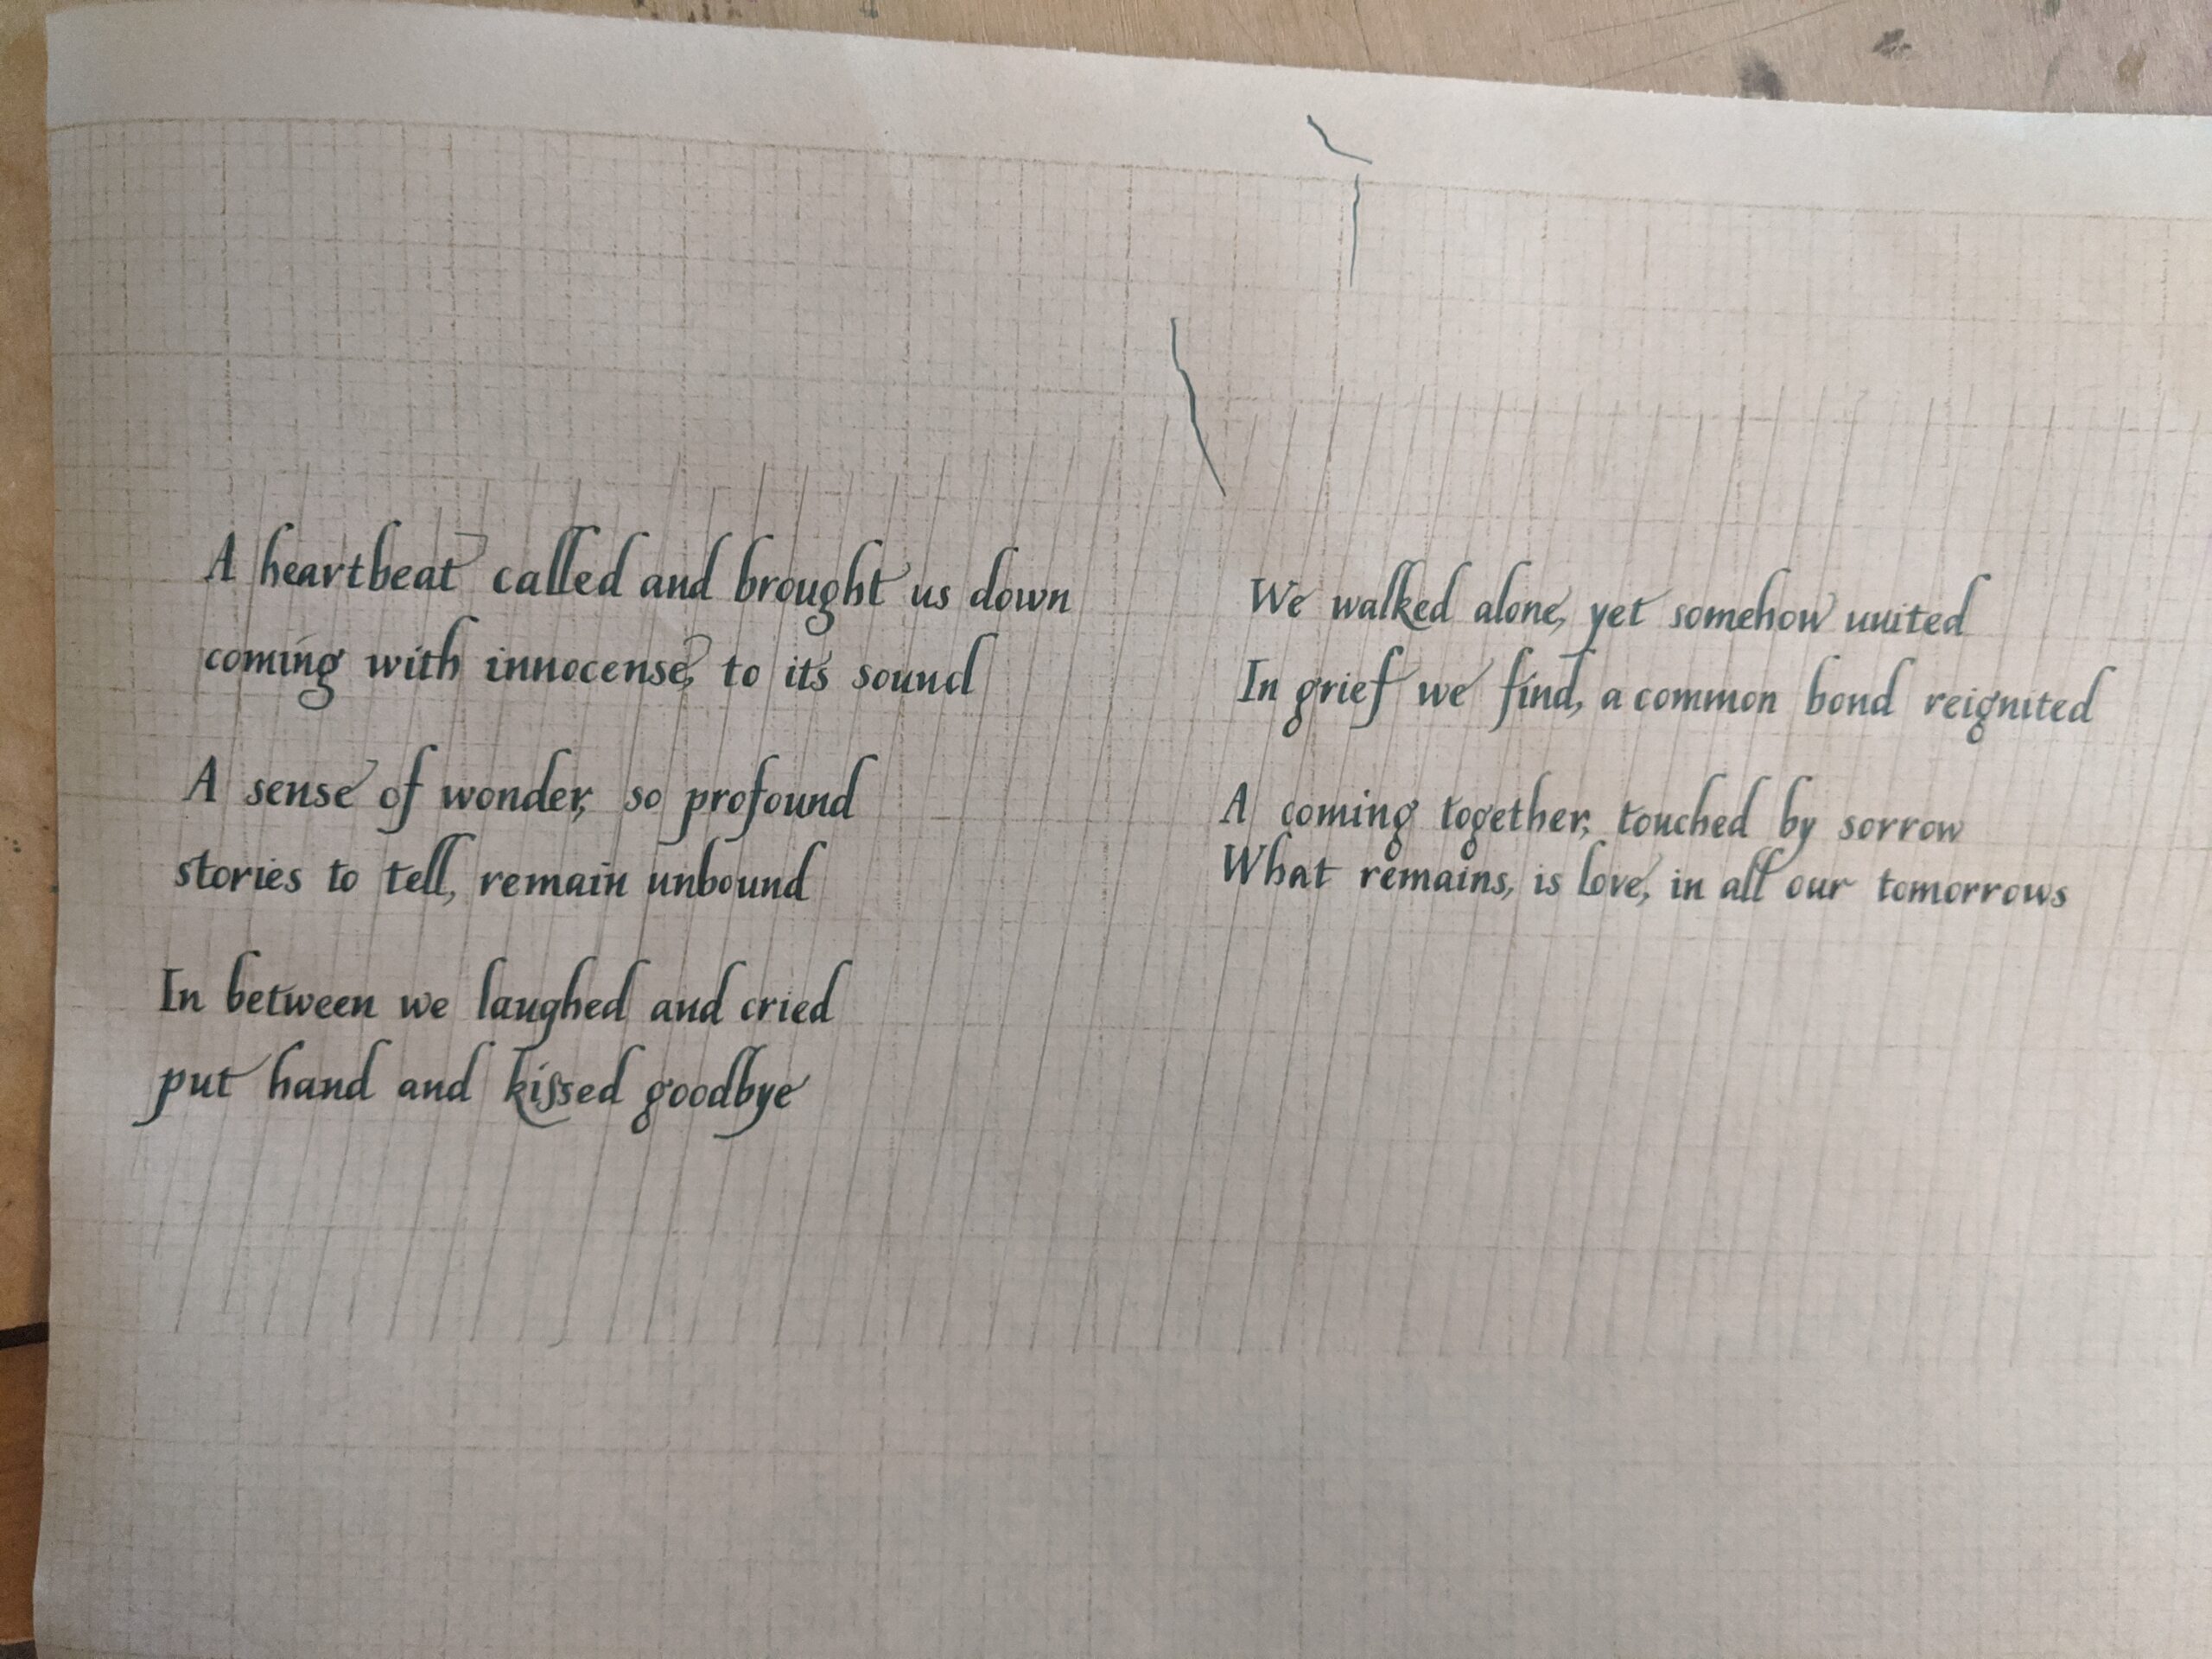 A heartbeat called and brought us down
coming with innocense, to it's sound
A sense of wonder, so profound
stories to tell, remain unbound
In between we laughed and cried
put hand and kissed goodbye
We walked alone, yet somehow united
In grief we find, a common bond reignited
A coming together, touched by sorrow
What remains, is love, in all our tomorrows